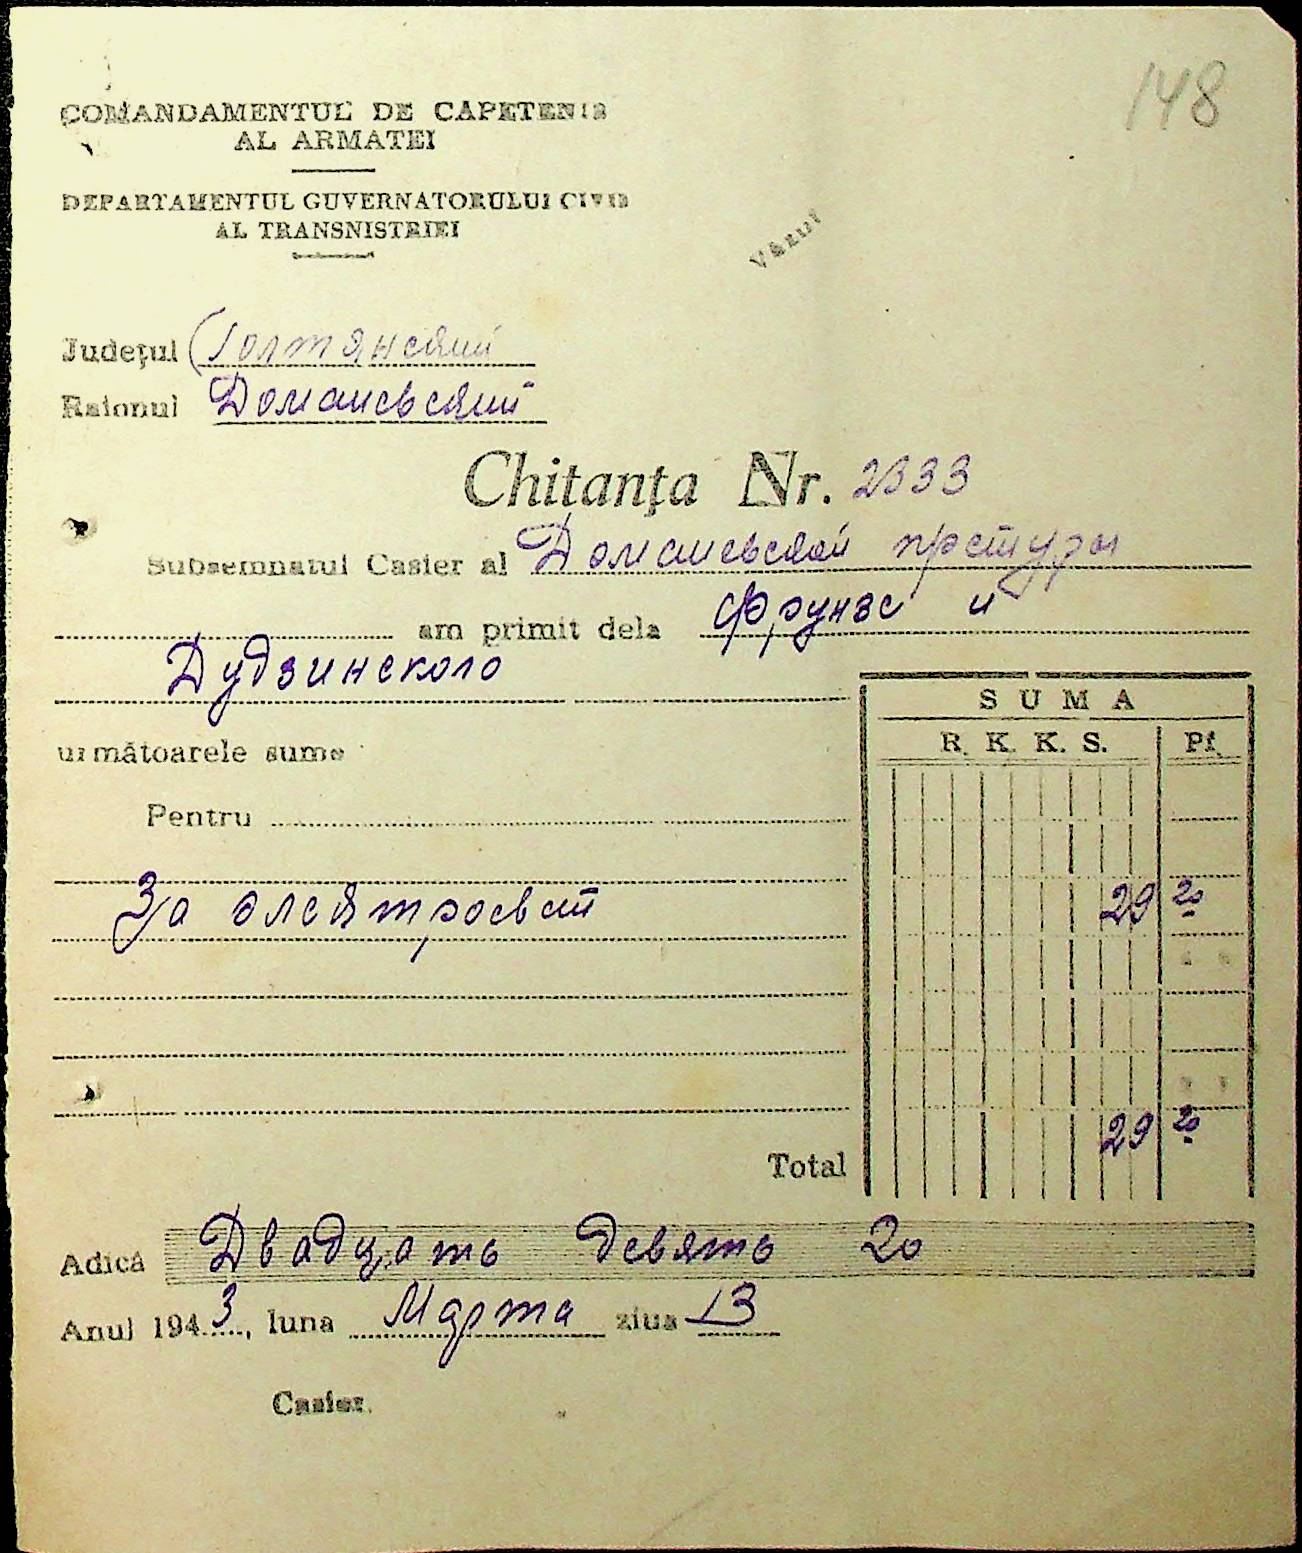 148
COMANDAMENTUL DE CAPETENIE
AL ARMATEI
DEPARTAMENTUL GUVERNATORULUI CIVIL
AL TRANSNISTRIEI
Văzut
Județul Голтянский
Raionul Доманевский
Chitanța Nr. 2333
Subsemnatul Casier al Доманевской претуры
am primit dela Фрунзе и
Дудзинского
următoarele sume
SUMA
R. K. K. S. Pf.
Pentru
За электросвет 29 20
Total 29 20
Adică Двадцать девять 20
Anul 1943, luna Марта ziua 13
Casier.